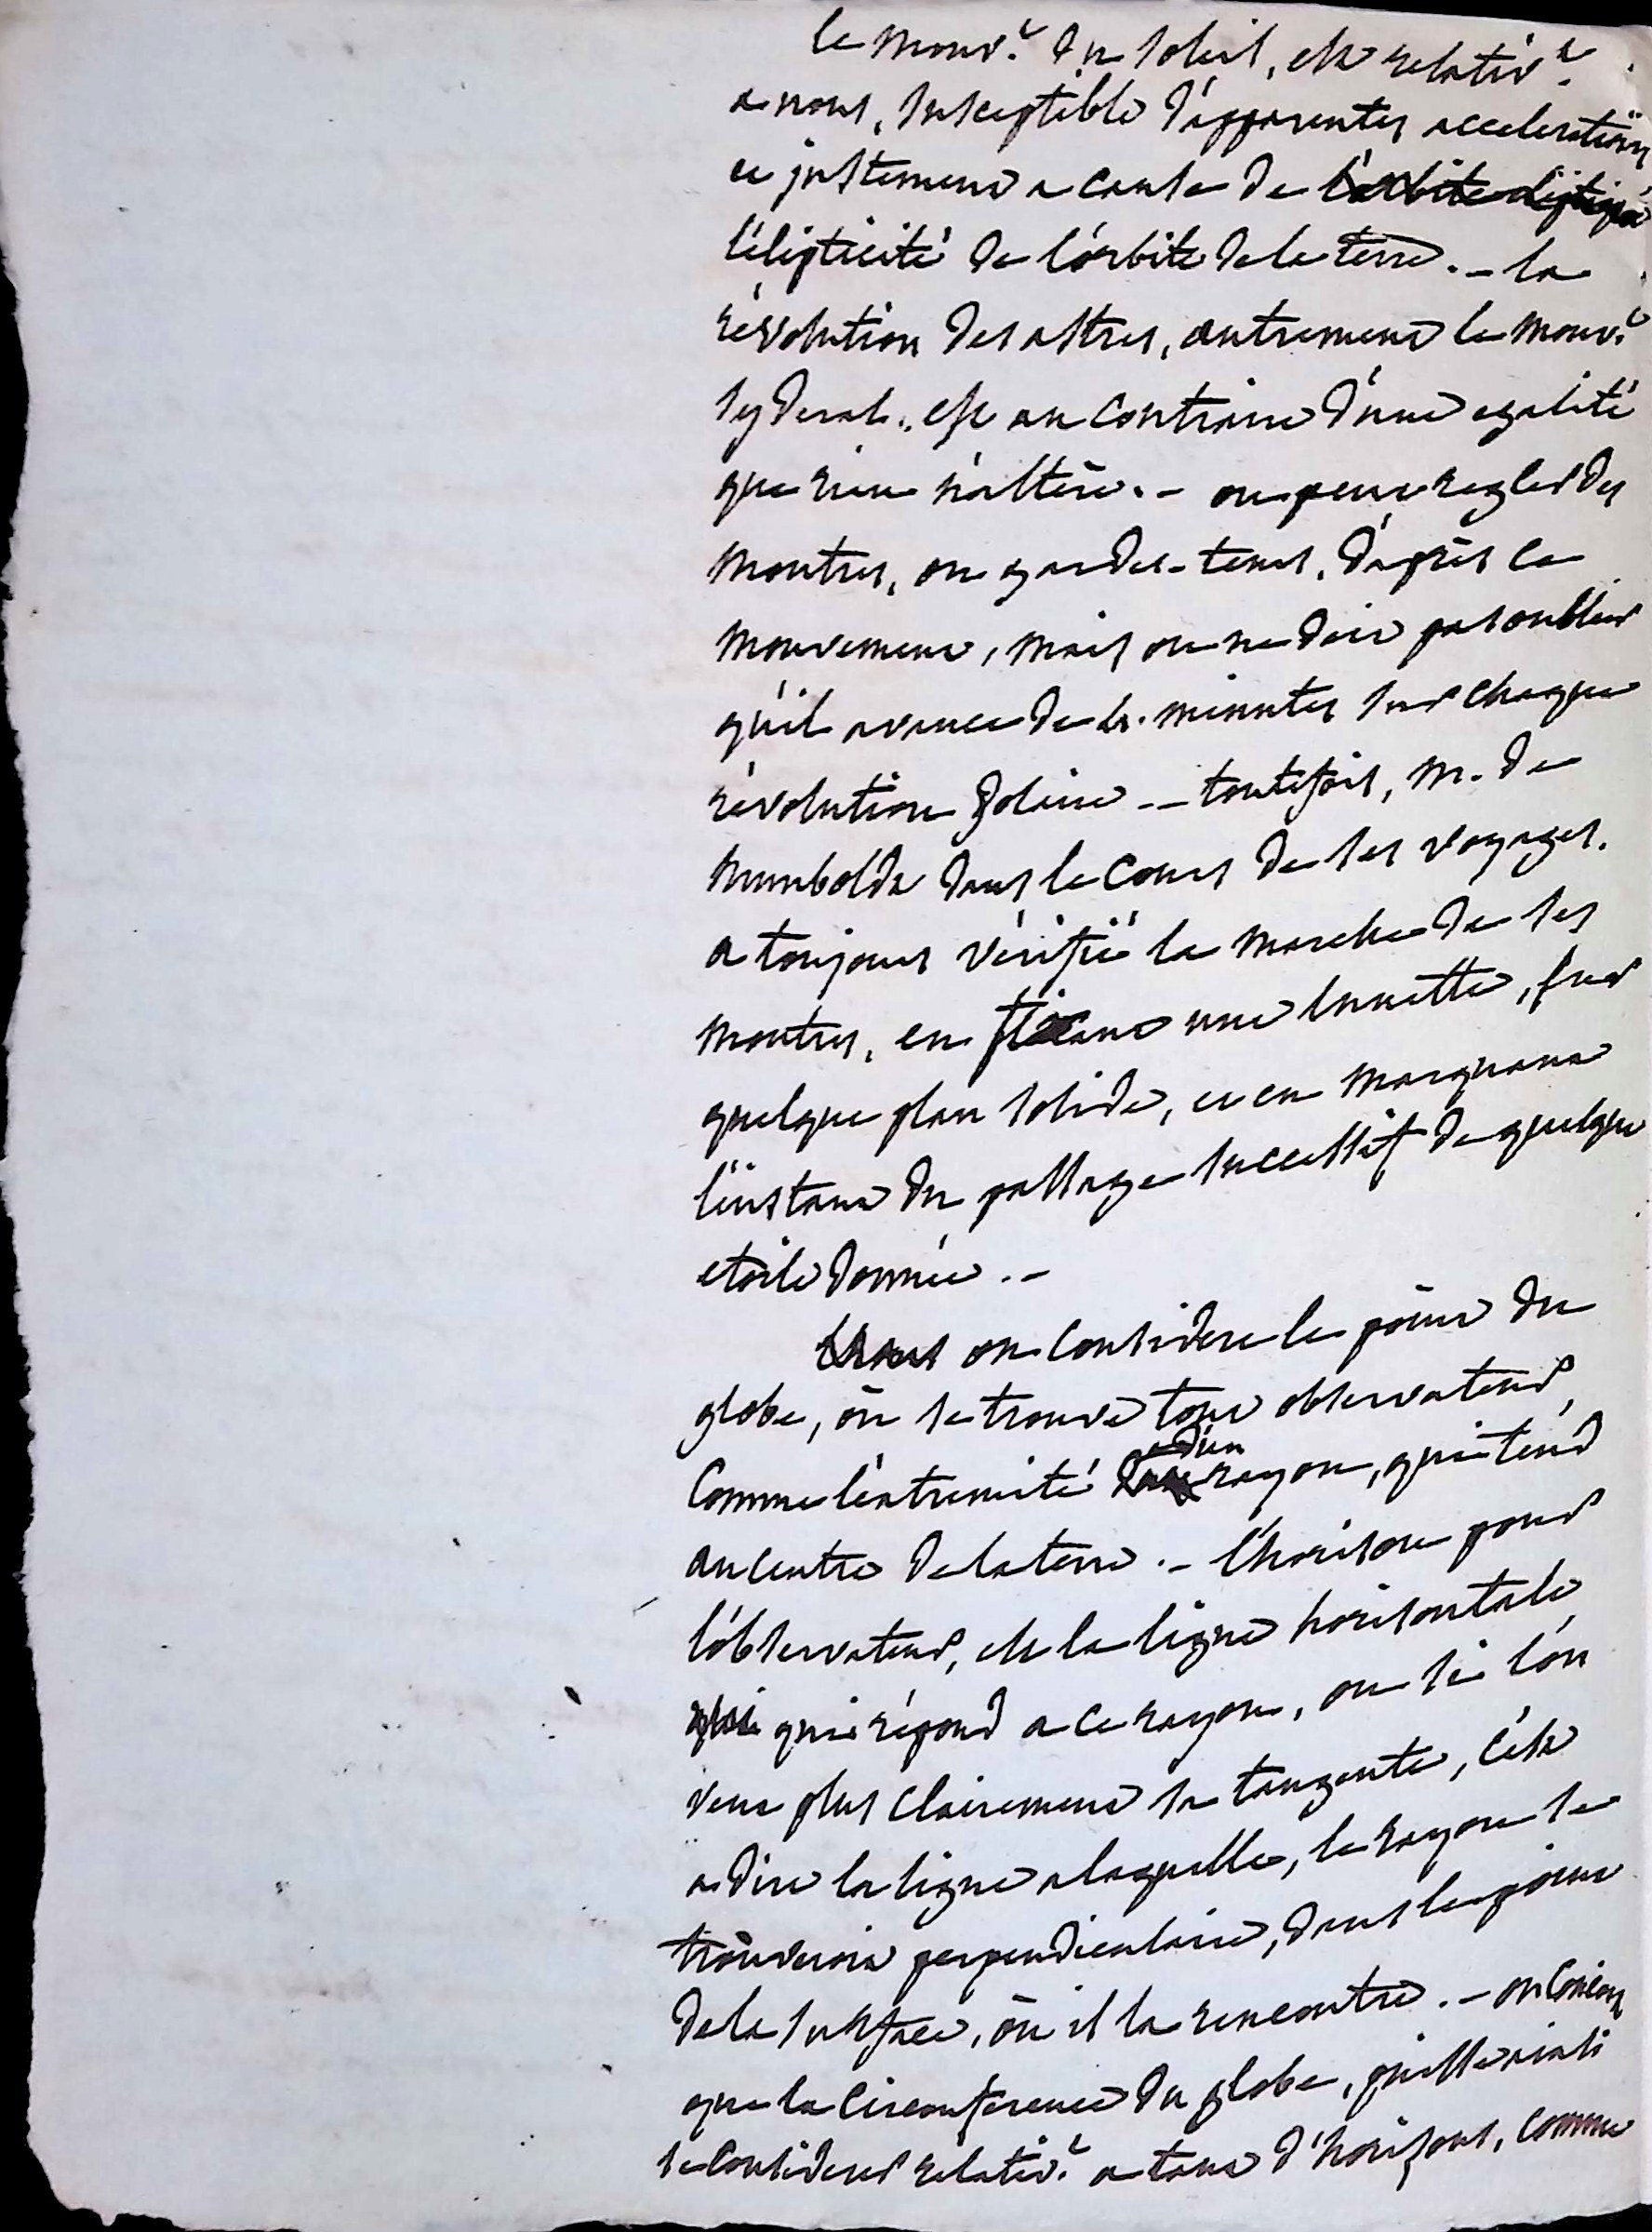 le mouv.t du soleil, est relativ.t
a nous, susceptible d'apparentes accelerations
et justement a cause de l'orbite eliptique
l'élipticité de l'orbite de la terre. – la
révolution des astres, autrement le mouv.t
syderal, est au contraire d'une egalité
que rien n'altère. – on peut regler des
montres, ou gardes-tems, d'après ce
mouvement, mais on ne doit pas oublier
qu'il avance de 4. minutes sur chaque
révolution solaire – toutefois, m. de
humboldt dans le cours de ses voyages.
a toujours vérifié la marche de ses
montres, en fixant une lunette, sur
quelque plan solide, et en marquant
l'instant du passage successif de quelque
etoile donnée. –
on considere le point du
globe, où se trouve tout observateur,
comme l'extremité d'un rayon, qui tend
au centre de la terre. – l'horison pour
l'observateur, est la ligne horisontale,
qui qui répond a ce rayon, ou si l'on
veut plus clairement sa tangente, c'est
a dire la ligne a laquelle, le rayon se
trouverait perpendiculaire, dans le point
de la surface, où il la rencontre. – on concoit
que la circonference du globe, puisse ainsi
se considerer relativ.t a tant d'horisons, comme